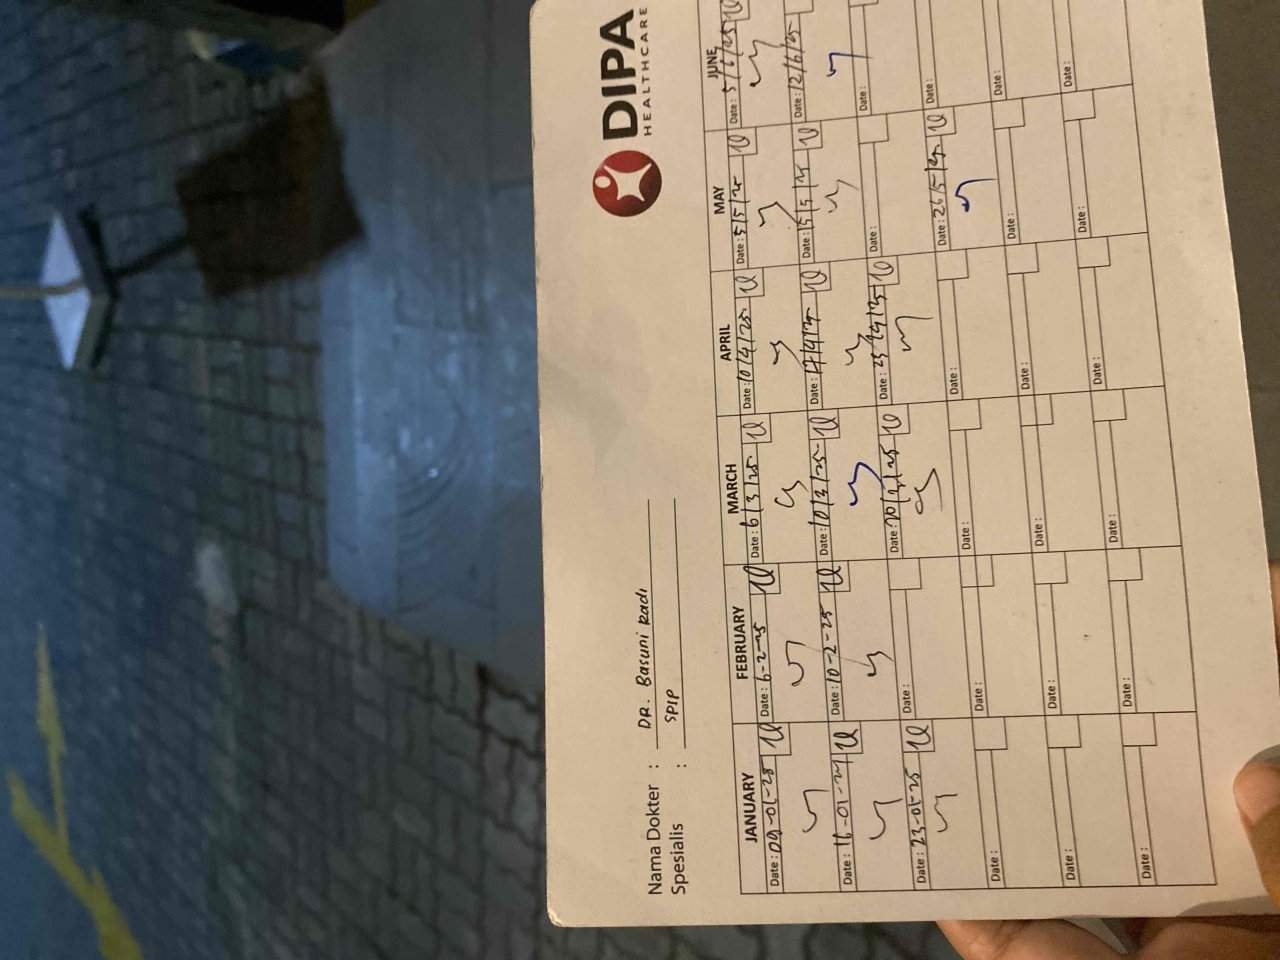 DIPA
HEALTHCARE
Nama Dokter : DR. Basuni Radi
Spesialis : SPJP
JANUARY FEBRUARY MARCH APRIL MAY JUNE
Date: 09-01-25 Date: 6-2-25 Date: 6/3/25 Date: 10/4/25 Date: 5/5/25 Date: 5/6/25
Date: 16-01-25 Date: 10-2-25 Date: 10/3/25 Date: 17/4/25 Date: 15/5/25 Date: 12/6/25
Date: 23-01-25 Date: Date: 20/3/25 Date: 25/4/25 Date: Date:
Date: Date: Date: Date: Date: 26/5/25 Date:
Date: Date: Date: Date: Date: Date:
Date: Date: Date: Date: Date: Date: